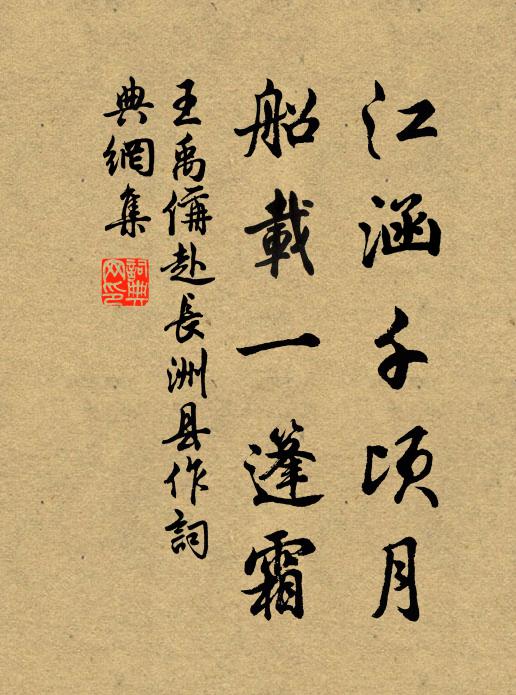 江涵千頃月
船載一篷霜
王禹偁赴長洲县作詞
典網集
詞典
网印